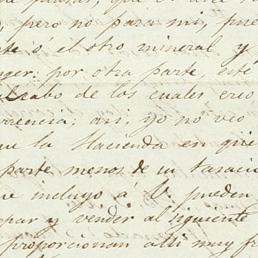 , pero no para mi, pue
te o el otro mineral y
ger; por otra parte, este
cabo de los cuales creo
rencia; asi, yo no veo
ue la Hacienda en que
parte menos de su tasacio
ue incluyo á V. pueden
par y vender al siguiente
proporcionan alli muy fr